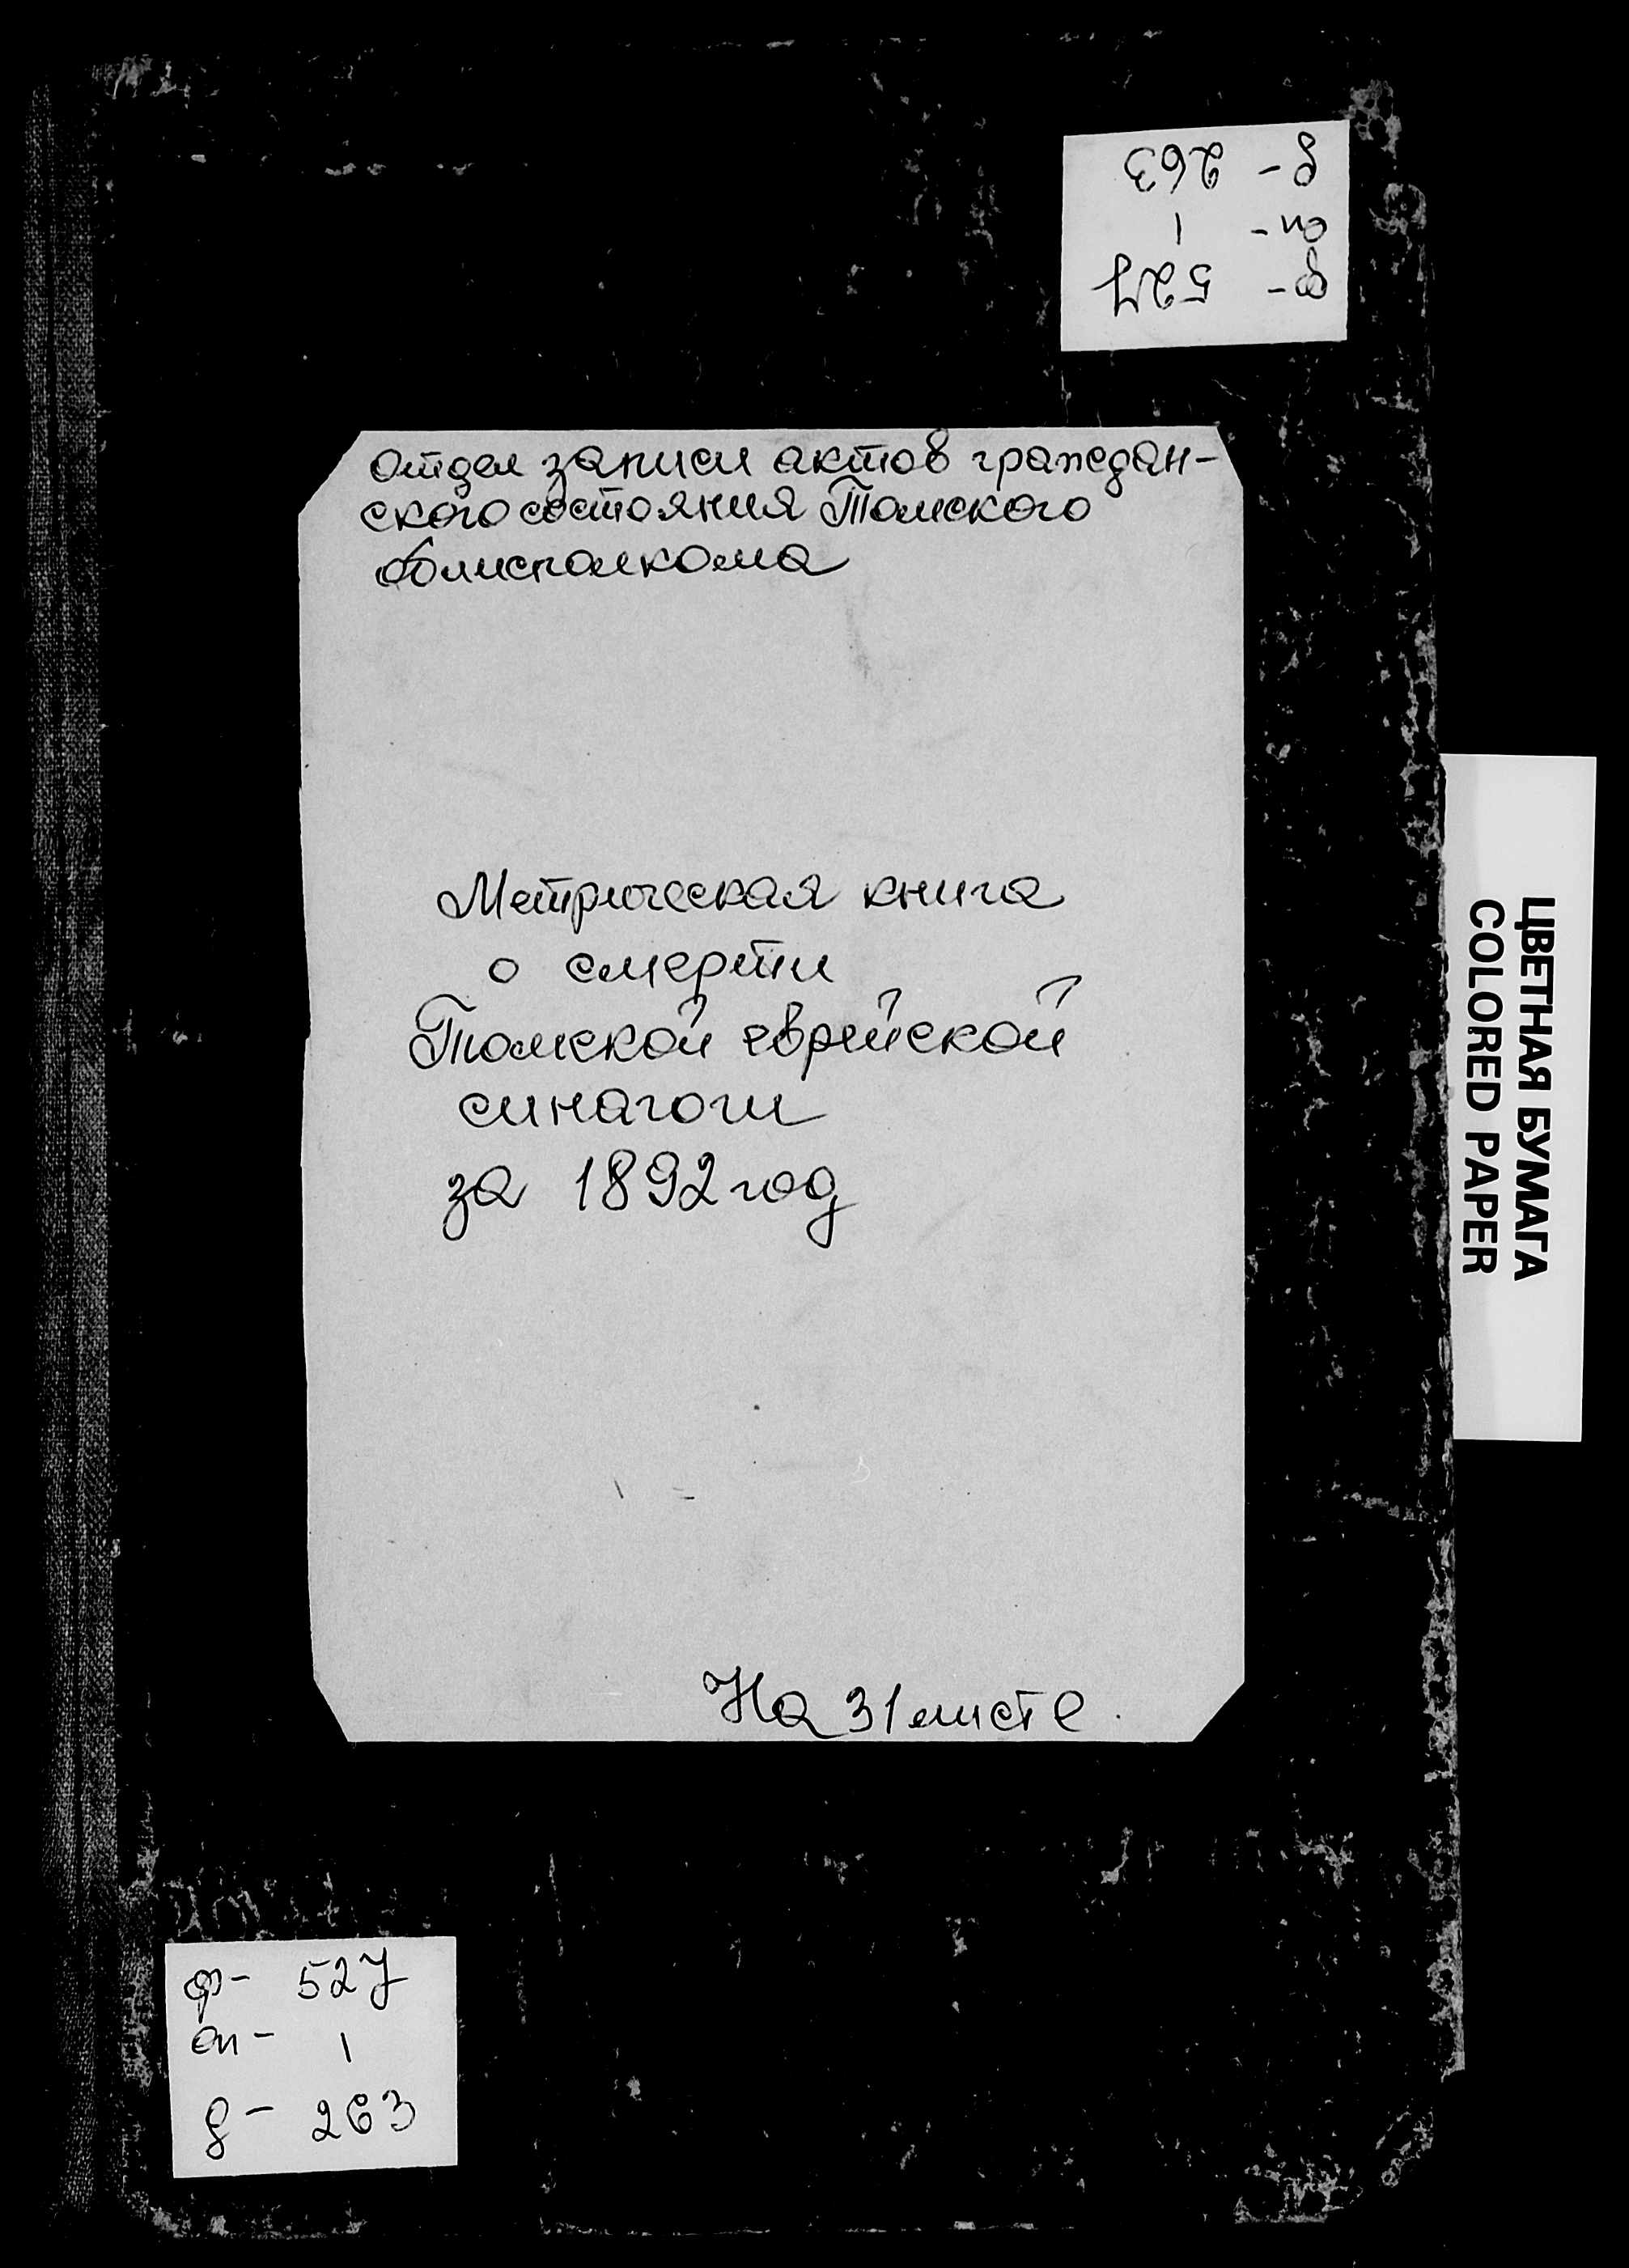 д- 263
оп- 1
ф- 527
Отдел записи актов граждан-
ского состояния Томского
облисполкома
Метрическая книга
о смерти
Томской еврейской
синагоги
за 1892 год
На 31 листе.
ЦВЕТНАЯ БУМАГА
COLORED PAPER
ф- 527
оп- 1
д- 263